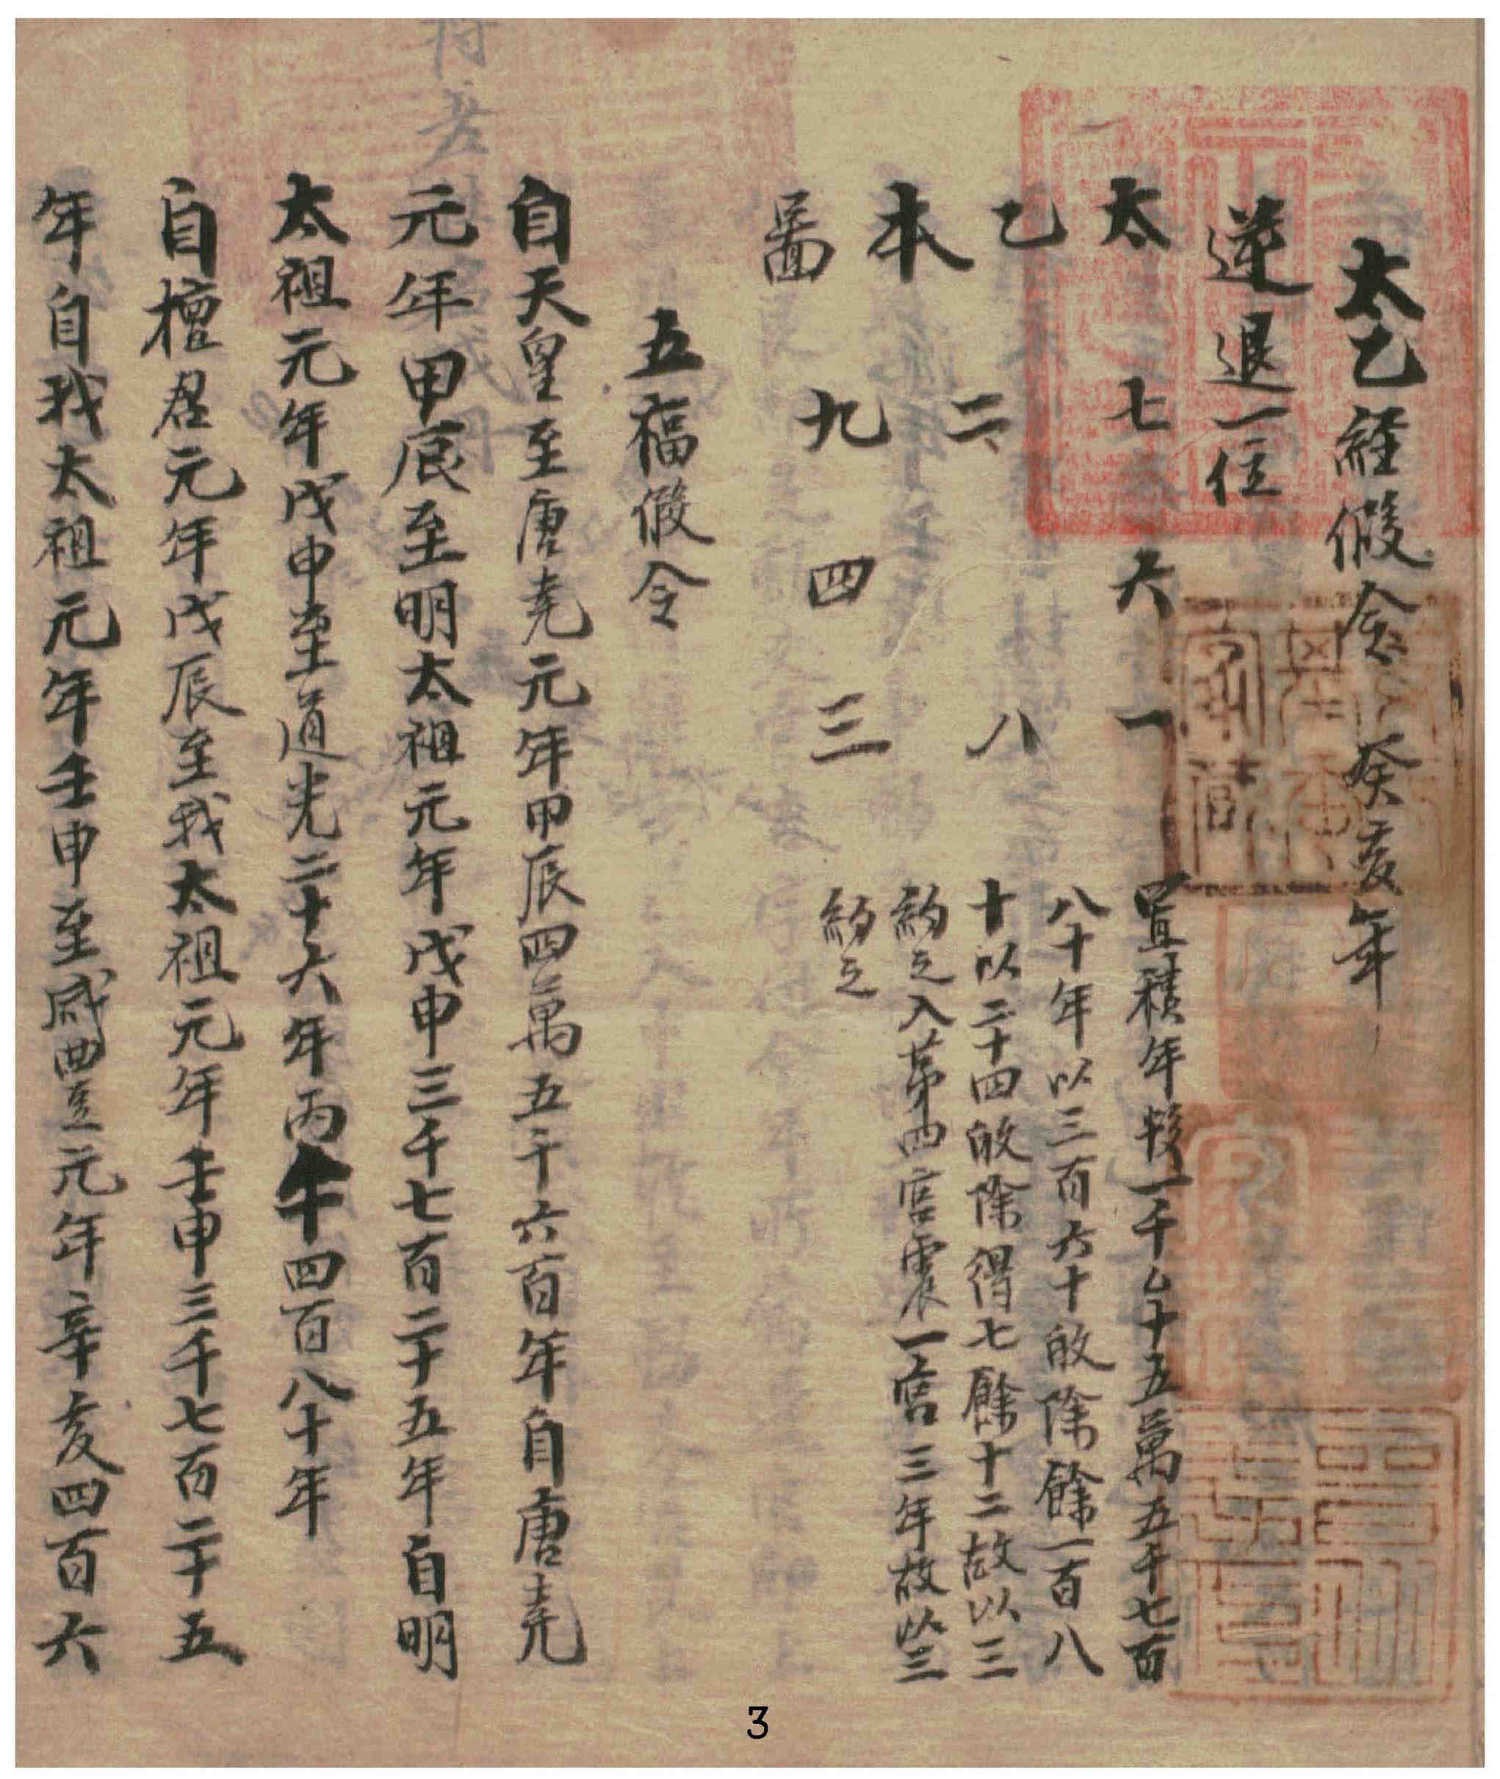 太乙經假令 癸亥年
逆退一位
太 七 六 一
乙 二 八
本
啚 九 四 三
置積年歨一千厶十五萬五千七百
八十年以三百六十㪇除餘一百八
十以二十四㪇除得七餘十二故以三
約之入苐四宮震一宮三年故以三
約之
五福假令
自天皇至唐堯元年甲辰四萬五千六百年自唐堯
元年甲辰至明太祖元年戊申三千七百二十五年自明
太祖元年戊申至道光二十六年丙午四百八十年
自檀君元年戊辰至我太祖元年壬申三千七百二十五
年自我太祖元年壬申至咸豊元年辛亥四百六
3